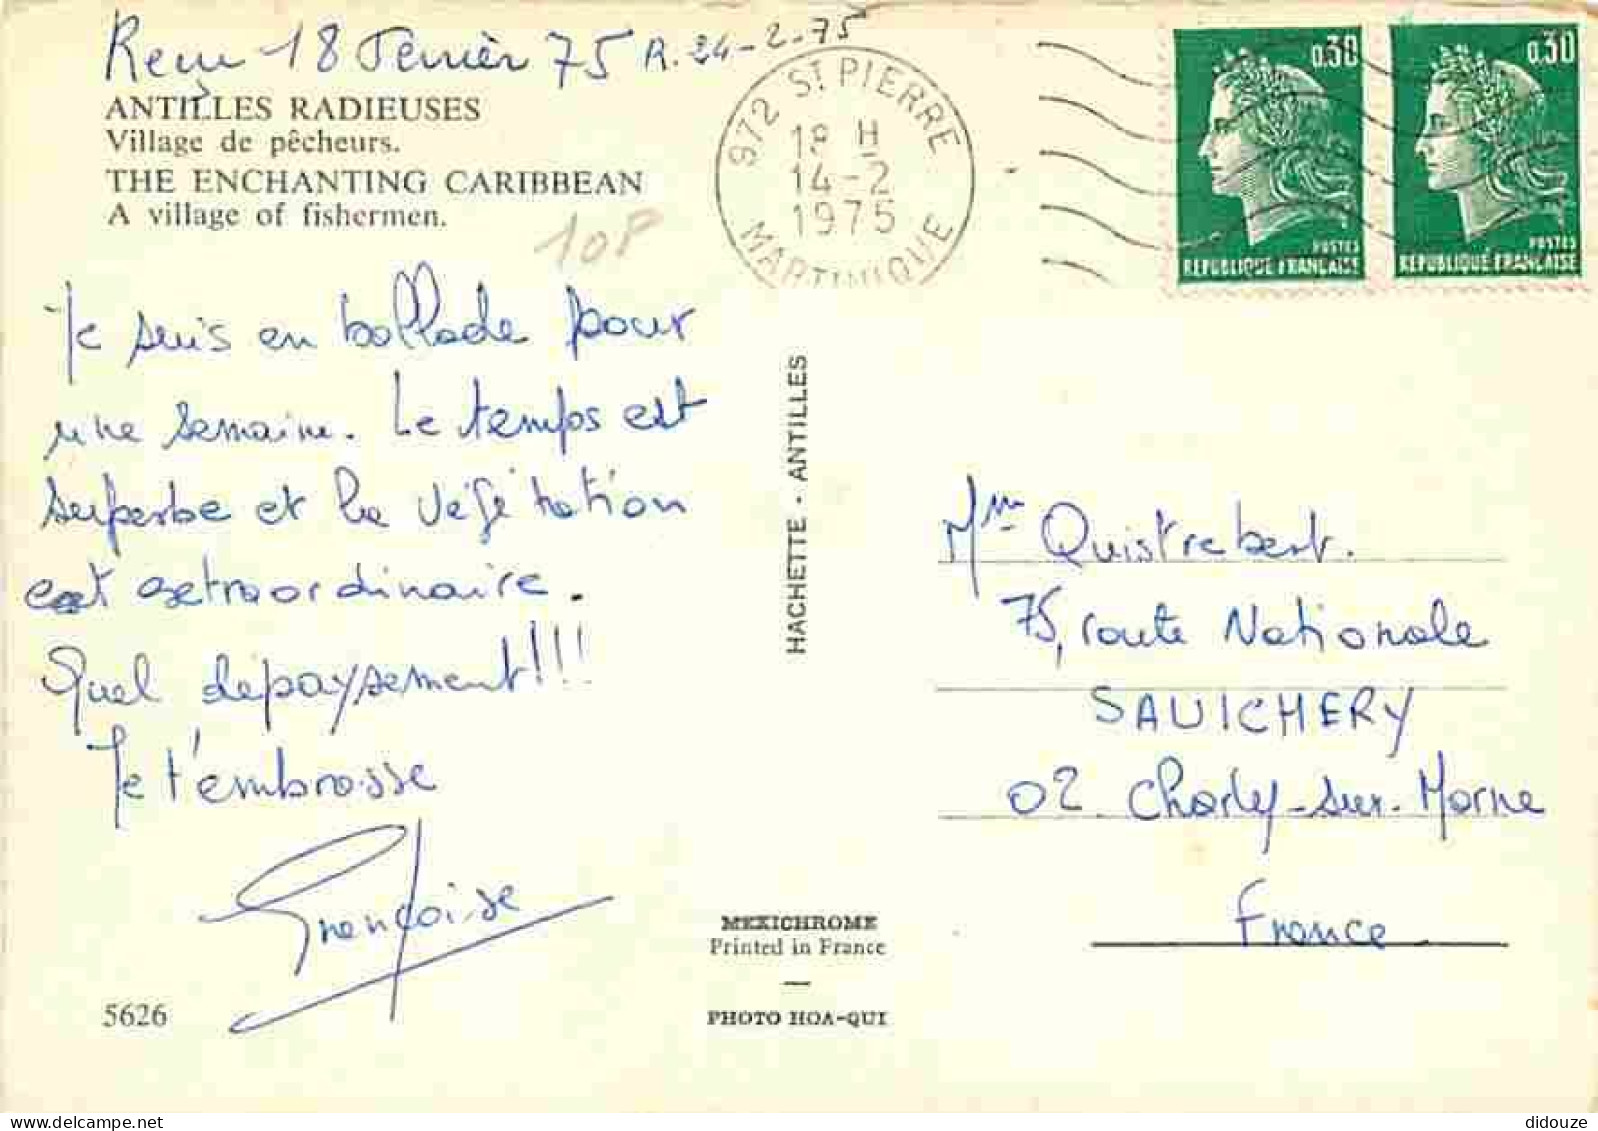 Reçu 18 Février 75 R. 24-2-75
ANTILLES RADIEUSES
Village de pêcheurs.
THE ENCHANTING CARIBBEAN
A village of fishermen.
10F
972 ST PIERRE
18 H
14-2
1975
MARTINIQUE
0,30
POSTES
REPUBLIQUE FRANÇAISE
0,30
POSTES
REPUBLIQUE FRANÇAISE
Je suis en ballade pour
une semaine. Le temps est
superbe et la végétation
est extraordinaire.
Quel depaysement!!!
Je t'embrasse
Françoise
5626
HACHETTE - ANTILLES
MEXICHROME
Printed in France
PHOTO HOA-QUI
Mme Quistrebert.
75, route Nationale
SAULCHERY
02 Charly-sur-Marne
France
didouze